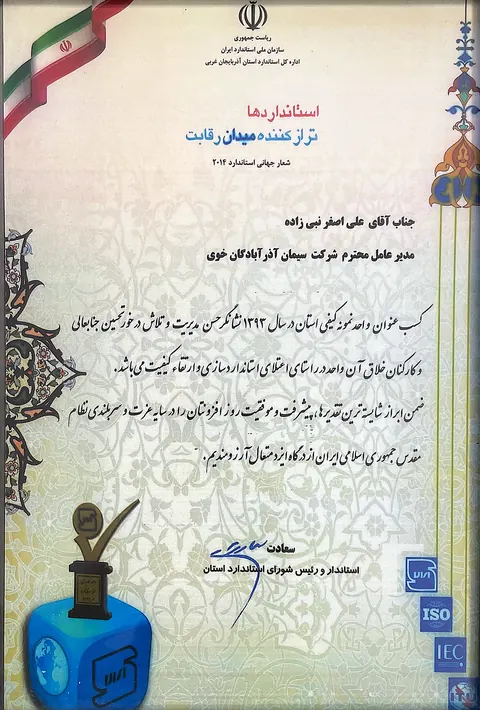 ریاست جمهوری
سازمان ملی استاندارد ایران
اداره کل استاندارد استان آذربایجان غربی
استانداردها
تراز کننده میدان رقابت
شعار جهانی استاندارد ۲۰۱۴
جناب آقای علی اصغر نبی زاده
مدیر عامل محترم شرکت سیمان آذرآبادگان خوی
کسب عنوان واحد نمونه کیفی استان در سال ۱۳۹۳ نشانگر حسن مدیریت و تلاش درخور تحسین جنابعالی
و کارکنان خلاق آن واحد در راستای اعتلای استانداردسازی و ارتقاء کیفیت می باشد.
ضمن ابراز شایسته ترین تقدیرها، پیشرفت و موفقیت روز افزونتان را در سایه عزت و سربلندی نظام
مقدس جمهوری اسلامی ایران از درگاه ایزد متعال آرزومندیم.
سعادت
استاندار و رئیس شورای استاندارد استان
ISO
IEC
ITU